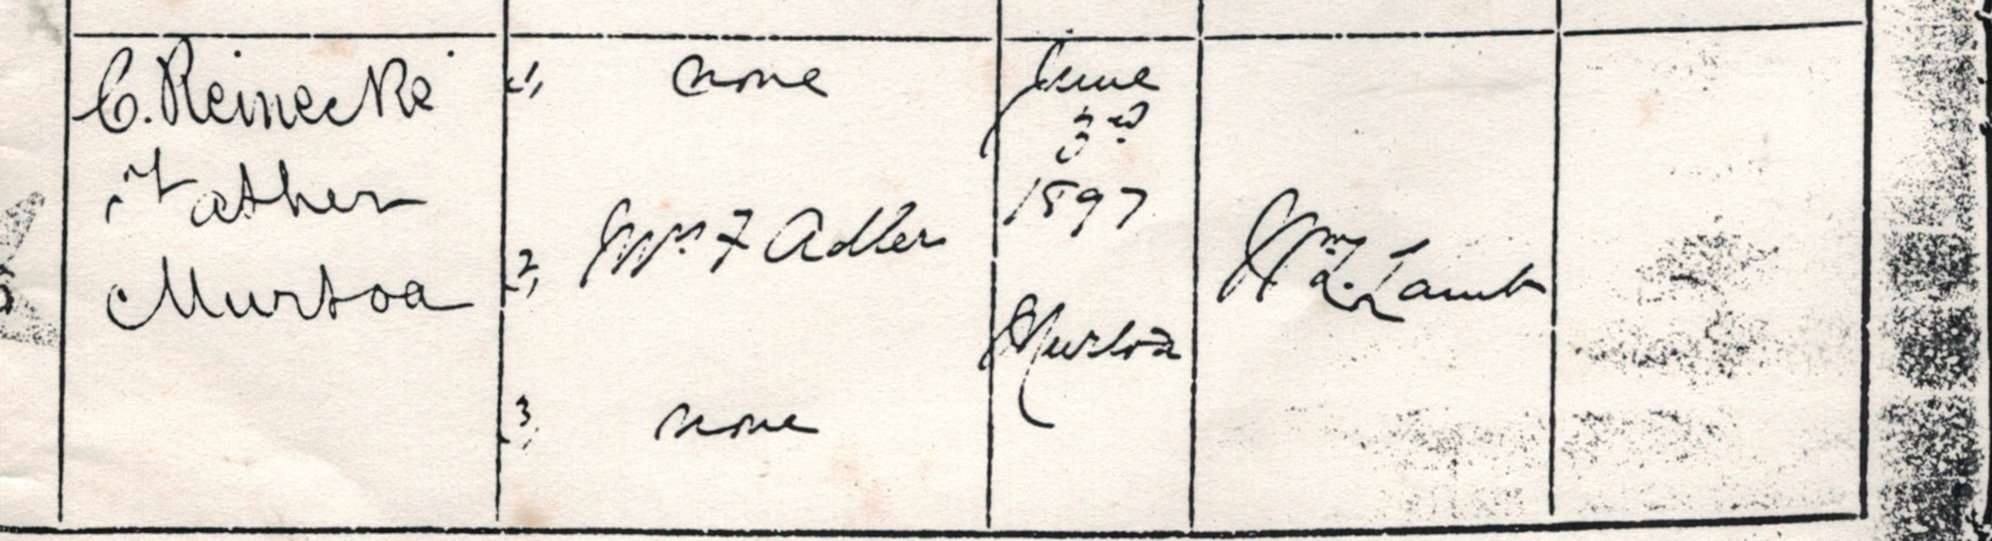 C. Reinecke
Father
Murtoa
(1)
none
(2)
Mrs. F Adler
(3)
none
June
3rd
1897
Murtoa
Wm L. Lamb